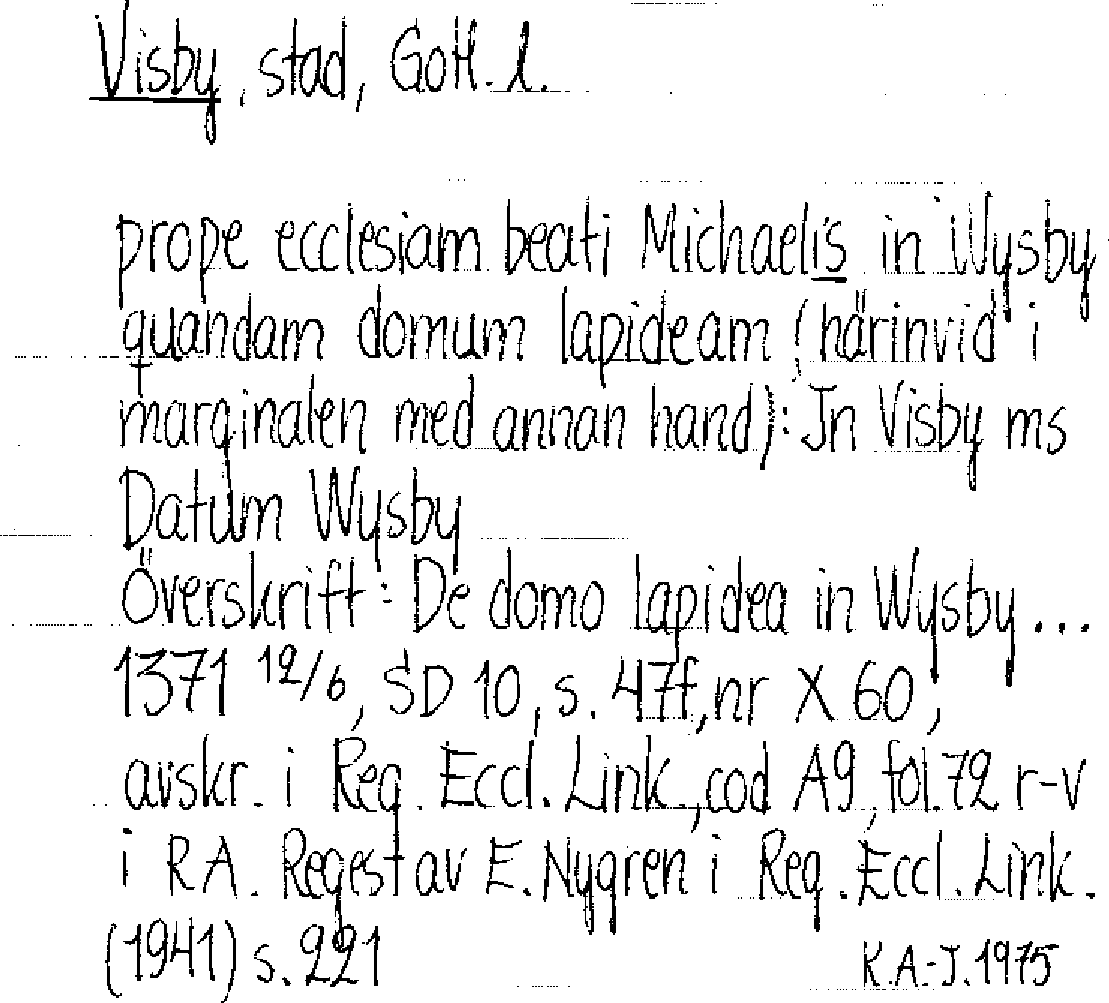 Visby, stad, Gotl. l.
prope ecclesiam beati Michaelis in Wysby
quandam domum lapideam (härinvid i
marginalen med annan hand): Jn Visby ms
Datum Wysby
Överskrift: De domo lapidea in Wysby...
1371 12/6, SD 10, s. 47f, nr X 60,
avskr. i Reg. Eccl. Link, cod A9, fol. 72 r-v
i RA. Regest av E. Nygren i Reg. Eccl. Link.
(1941) s. 221 K.A-J. 1975